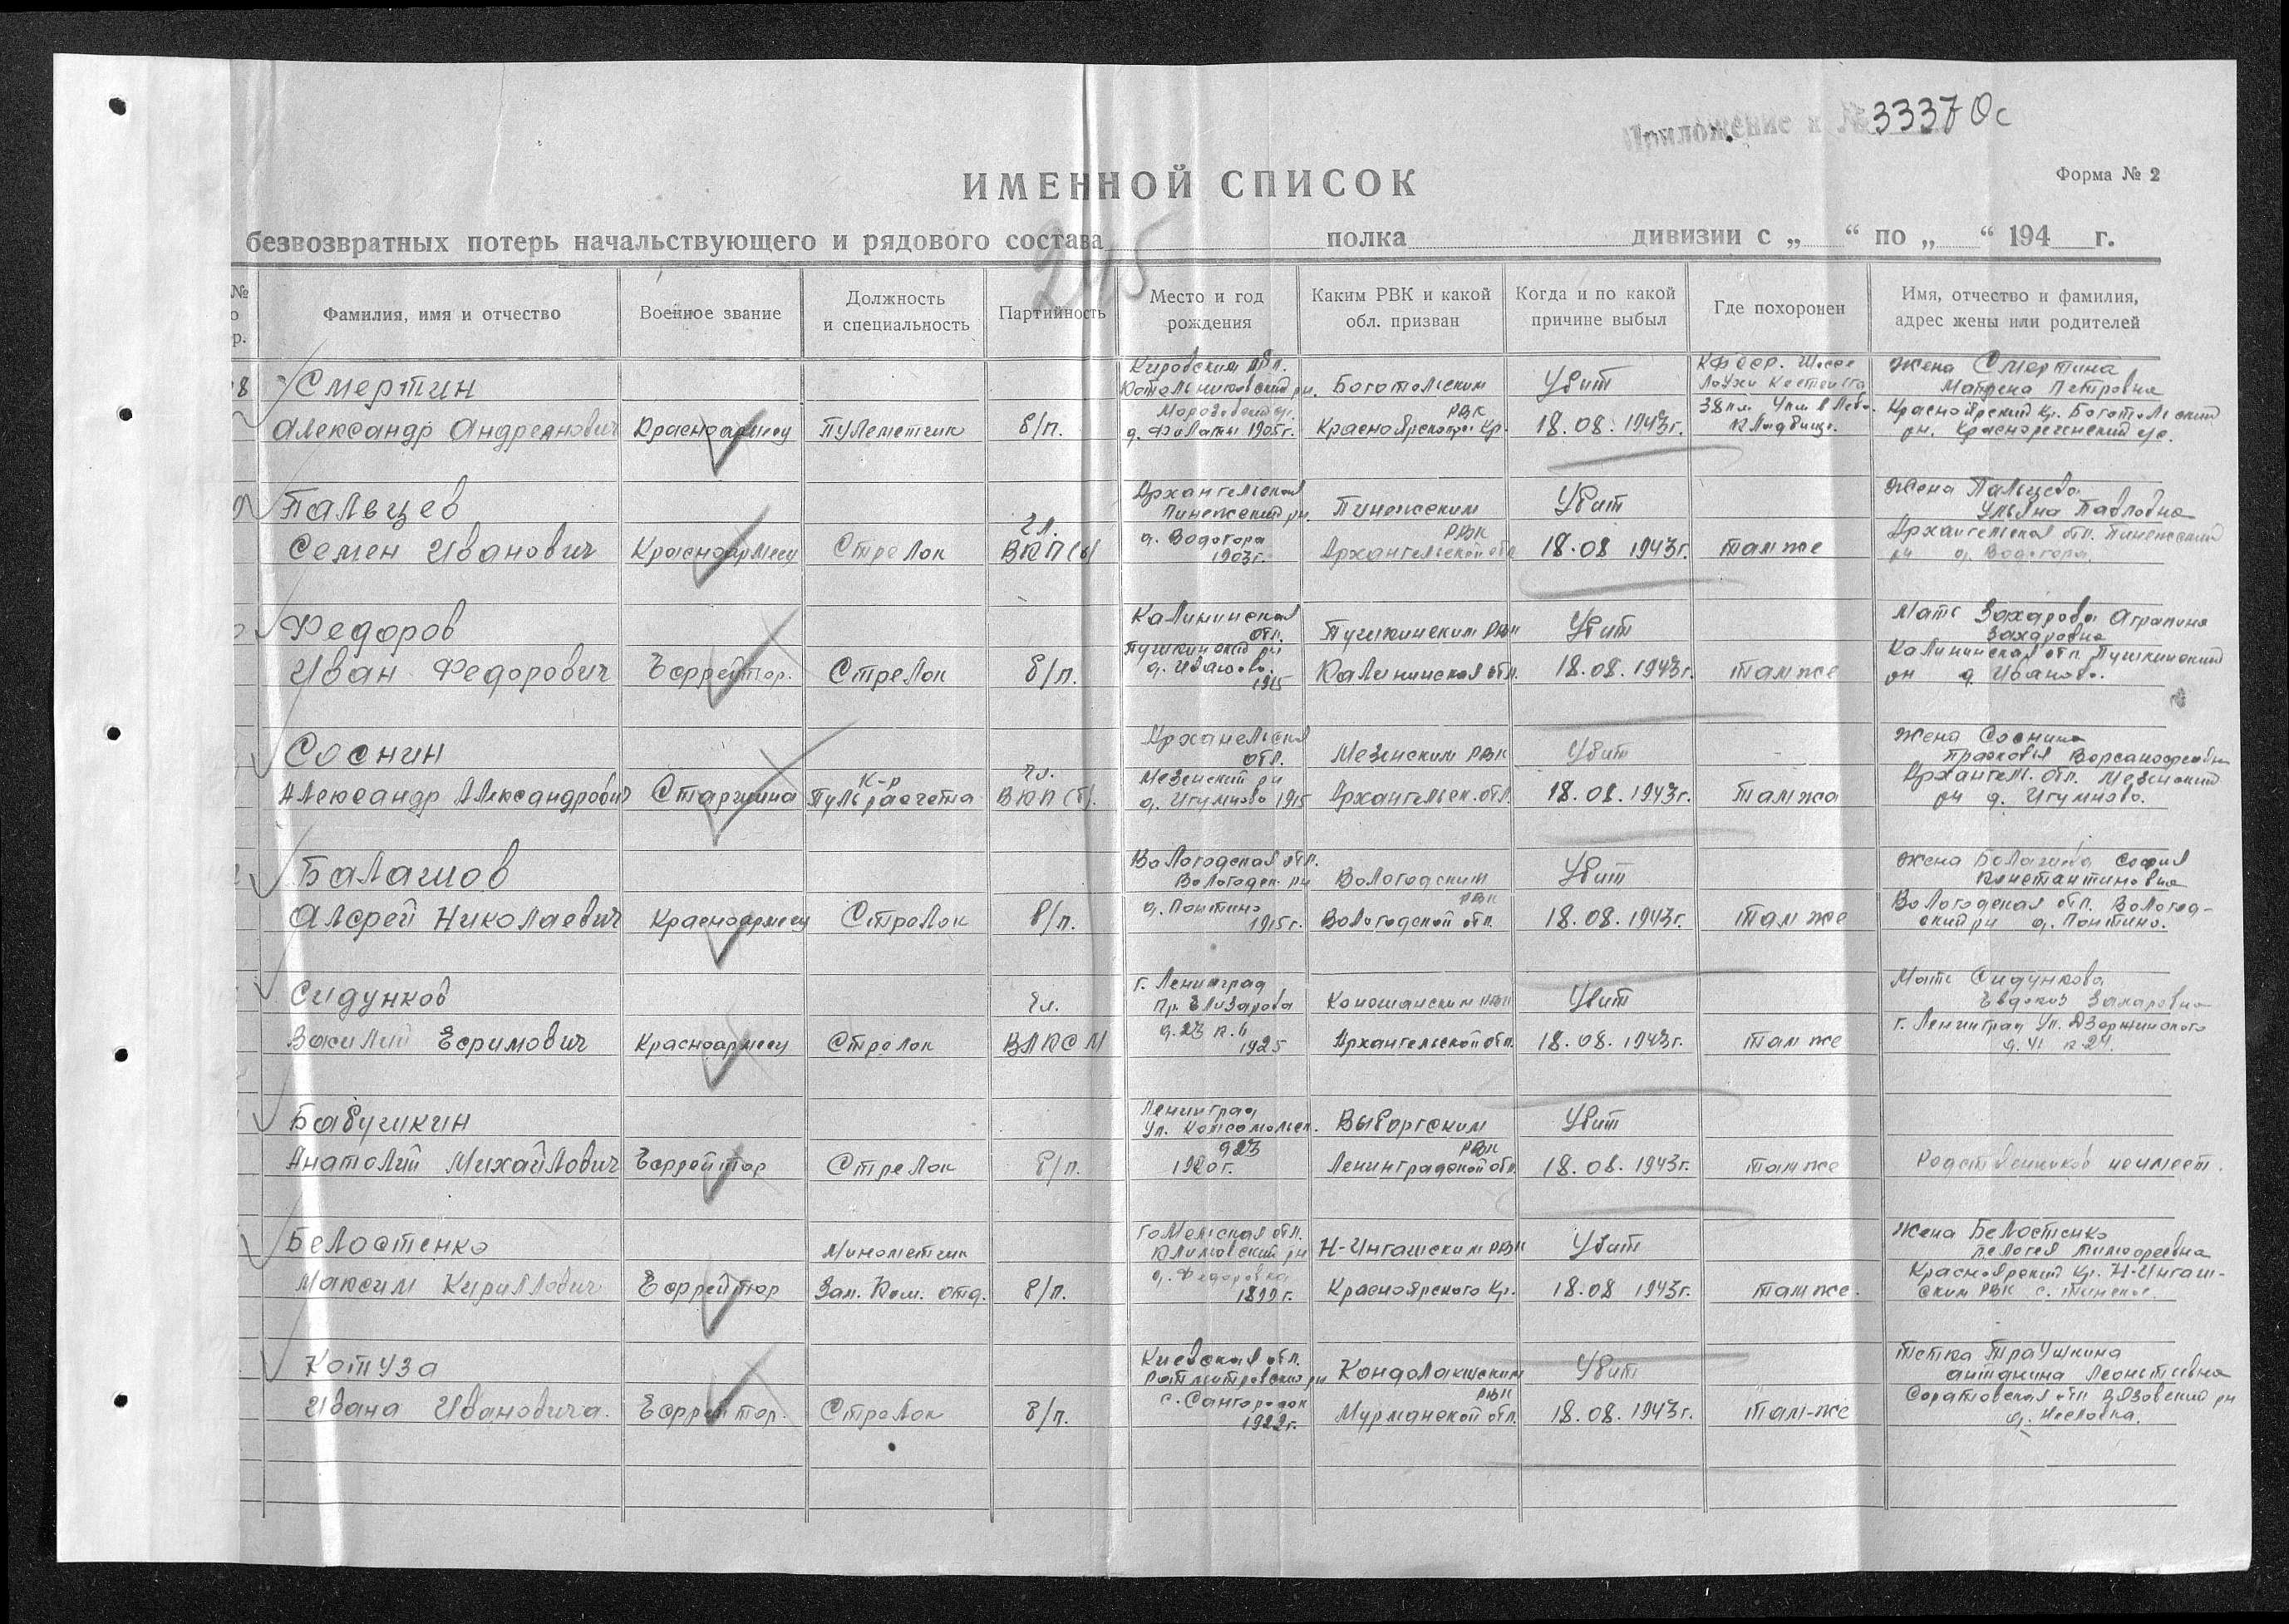 Приложение к № 33370с
ИМЕННОЙ СПИСОК
Форма № 2
безвозвратных потерь начальствующего и рядового состава полка дивизии с „ “ по „ “ 194 г.
245
№ Фамилия, имя и отчество Военное звание Должность и специальность Партийность Место и год рождения Каким РВК и какой обл. призван Когда и по какой причине выбыл Где похоронен Имя, отчество и фамилия, адрес жены или родителей
8 Смертин
Александр Андреянович Красноармеец Пулеметчик б/п.
Кировския обл.
Котельниковский рн.
д. Филаты 1905г.
Боготольским
РВК
Красноярского Кр.
Убит
18.08.1943г.
КФССР. Шоссе
Лоухи Кестеньга
38 км. 4 км. влево.
Кладбище.
Жена Смертина
Матрена Петровна
Красноярский Кр. Боготольский
рн. Краснореченский
Пальцев
Семен Иванович Красноармеец Стрелок
чл.
ВКП(б)
Архангельская
Пинежский рн.
д. Водогора
1903г.
Пинежским
РВК
Архангельской обл
Убит
18.08 1943г. там же
Жена Пальцева
Ульяна Павловна
Архангельская обл. Пинежский
рн д. Водогора.
Федоров
Иван Федорович Ефрейтор. Стрелок б/п.
Калининская
обл.
Пушкинский рн
д. Иваново.
1915
Пушкинским РВК
Калининская обл.
Убит
18.08.1943г. там же
Мать Захарова Аграпина
Захаровна
Калининская обл. Пушкинский
рн д. Иваново.
Соснин
Александр Александрович Старшина
К-р
Пульрасчета
чл.
ВКП(б).
Арханельская
обл.
Мезенский рн
д. Игумново 1915
Мезенским РВК
Архангельск. обл.
Убит
18.08.1943г. там жа
Жена Соснина
Прасковья
Архангель. обл. Мезенский
рн д. Игумново.
Балашов
Алсфей Николаевич Красноармеец Стрелок б/п.
Вологодская обл.
Вологодск. рн
д. Поптино
1915г.
Вологодским
РВК
Вологодской обл.
Убит
18.08.1943г. там же
Жена Болашова София
Константиновна
Вологодская обл. Вологод-
ский рн д. Поптино.
Сидунков
Василий Ефимович Красноармеец Стрелок
чл.
ВЛКСМ
г. Ленинград
Пр. Елизарова
д. 23 к. 6
1925
Коношанским РВК
Архангельской обл.
Убит
18.08.1943г. там же
Мать Сидункова
Евдокия Захаровна
г. Ленинград Ул. Дзержинского
д. 41 к 24.
Бабушкин
Анатолий Михайлович Ефрейтор Стрелок б/п.
Ленинград
Ул. Комсомольск.
д 23
1920г.
Выборгским
РВК
Ленинградской обл.
Убит
18.08.1943г. там же
Родственников неимеет.
Белостенко
Максим Кириллович Ефрейтор
Минометчик
Зам. Ком. отд. б/п.
Гомельская обл.
Климовский рн
д. Федоровка
1899г.
Н-Ингашским РВК
Красноярского Кр.
Убит
18.08 1943г. там же.
Жена Белостенко
Пелогея Тимофеевна
Красноярский Кр. Н-Ингаш-
ским РВК с. Тинское.
Котуза
Ивана Ивановича. Ефрейтор. Стрелок б/п.
Киевская обл.
Ротмитровский рн
с. Сангородок
1922г.
Кондолакшским
РВК
Мурманской обл.
Убит
18.08.1943г. там-же
Тетка Траушкина
Антанина Леонтьевна
Соратовская обл Вязовский рн